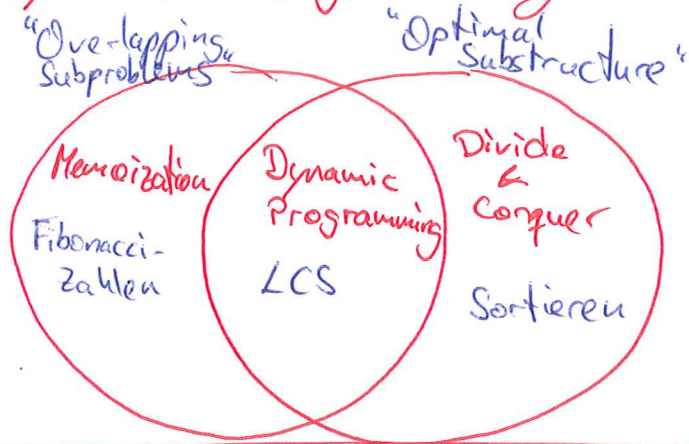 "Overlapping
Subproblems"
"Optimal
Substructure"
Memoization
Fibonacci-
Zahlen
Dynamic
Programming
LCS
Divide
&
Conquer
Sortieren